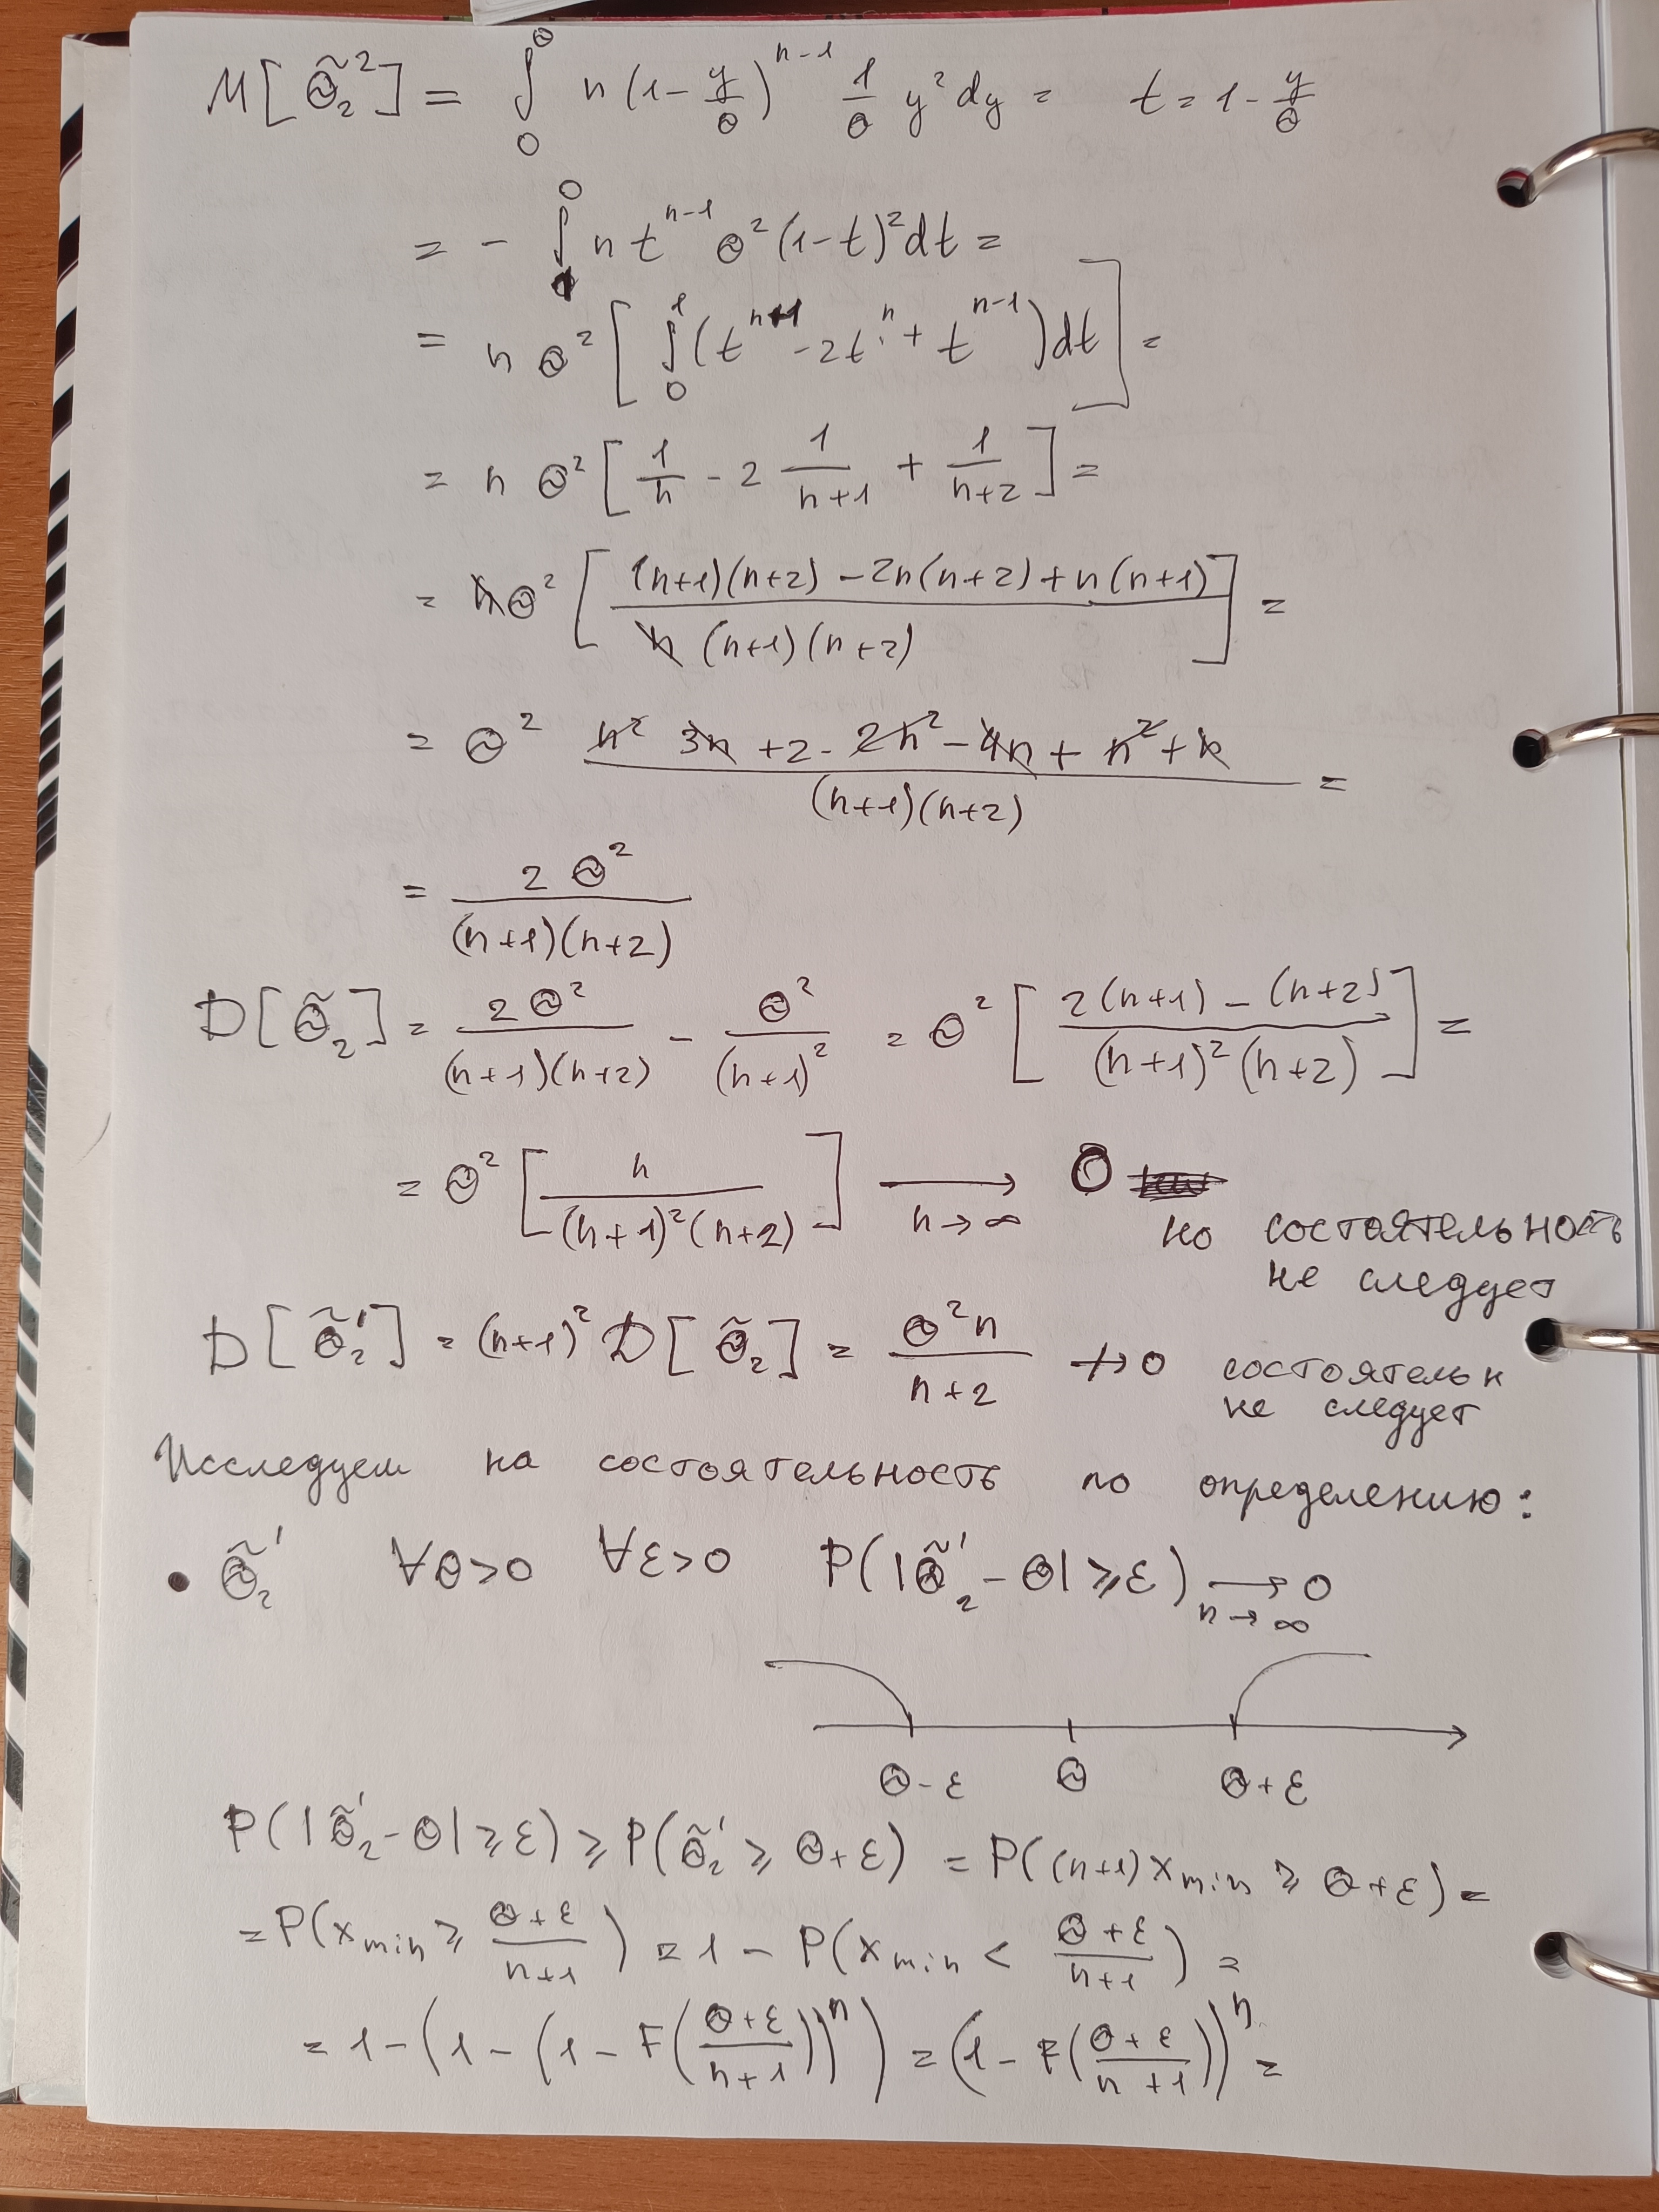 M[Θ̃₂²] = ∫₀^Θ n(1 - y/Θ)^(n-1) 1/Θ y² dy = t = 1 - y/Θ
= - ∫₁^0 n t^(n-1) Θ²(1-t)² dt =
= n Θ² [ ∫₀^1 (t^(n+1) - 2t^n + t^(n-1)) dt ] =
= n Θ² [ 1/n - 2 1/(n+1) + 1/(n+2) ] =
= nΘ² [ ((n+1)(n+2) - 2n(n+2) + n(n+1)) / (n(n+1)(n+2)) ] =
= Θ² (n² 3n + 2 - 2n² - 4n + n² + n) / ((n+1)(n+2)) =
= 2Θ² / ((n+1)(n+2))
D[Θ̃₂] = 2Θ² / ((n+1)(n+2)) - Θ² / (n+1)² = Θ² [ (2(n+1) - (n+2)) / ((n+1)²(n+2)) ] =
= Θ² [ n / ((n+1)²(n+2)) ] ⟶ 0 n→∞
но состоятельность
не следует
D[Θ̃₂'] = (n+1)² D[Θ̃₂] = Θ²n / (n+2) ↛ 0 состоятельн
не следует
Исследуем на состоятельность по определению:
• Θ̃₂' ∀Θ>0 ∀ε>0 P(|Θ̃₂' - Θ| ⩾ ε) ⟶ 0 n→∞
Θ-ε Θ Θ+ε
P(|Θ̃₂' - Θ| ⩾ ε) ⩾ P(Θ̃₂' ⩾ Θ+ε) = P((n+1)x_min ⩾ Θ+ε) =
= P(x_min ⩾ (Θ+ε)/(n+1)) = 1 - P(x_min < (Θ+ε)/(n+1)) =
= 1 - (1 - (1 - F((Θ+ε)/(n+1)))^n) = (1 - F((Θ+ε)/(n+1)))^n =